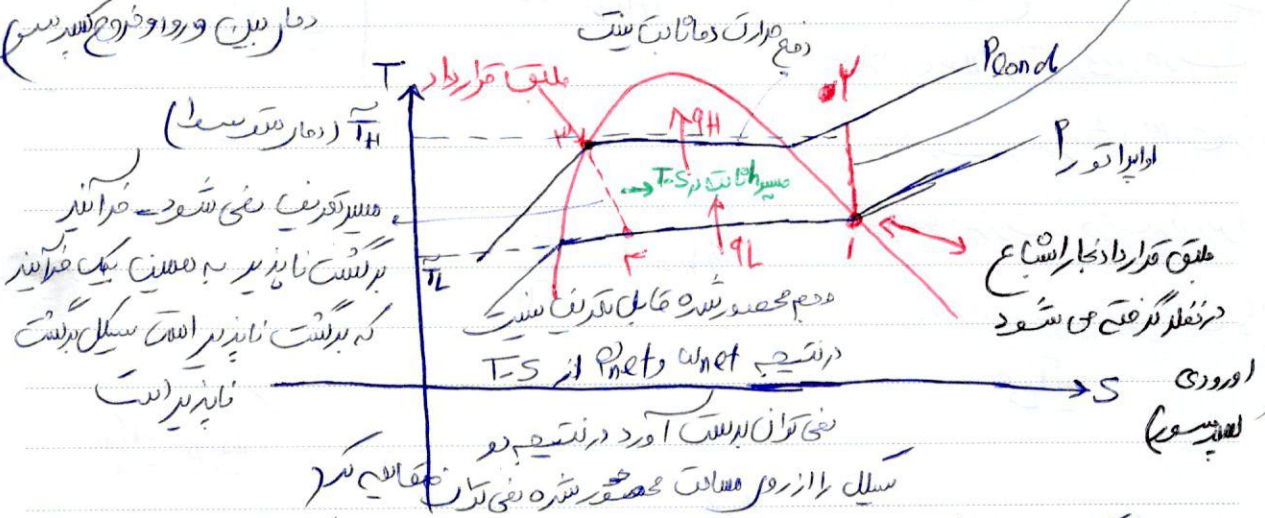 دمای بین ورود و خروج کمپرسور
دفع حرارت دما ثابت نیست
Pcond
T
طبق قرارداد
2
3
qH
T̄H (دمای متوسط)
P اواپراتور
مسیر h ثابت در T-S
مسیر تعریف نمی شود - فرآیند
برگشت ناپذیر به همین یک فرآیند
که برگشت ناپذیر است سیکل برگشت
ناپذیر است
T̄L
4
qL
1
طبق قرارداد بخار اشباع
در نظر گرفته می شود
(ورودی
کمپرسور)
حجم محصور شده قابل تعریف نیست
در نتیجه qnet و wnet از T-S
S
نمی توان بدست آورد در نتیجه دو
سیکل را از روی مساحت محصور شده نمی توان مقایسه کرد